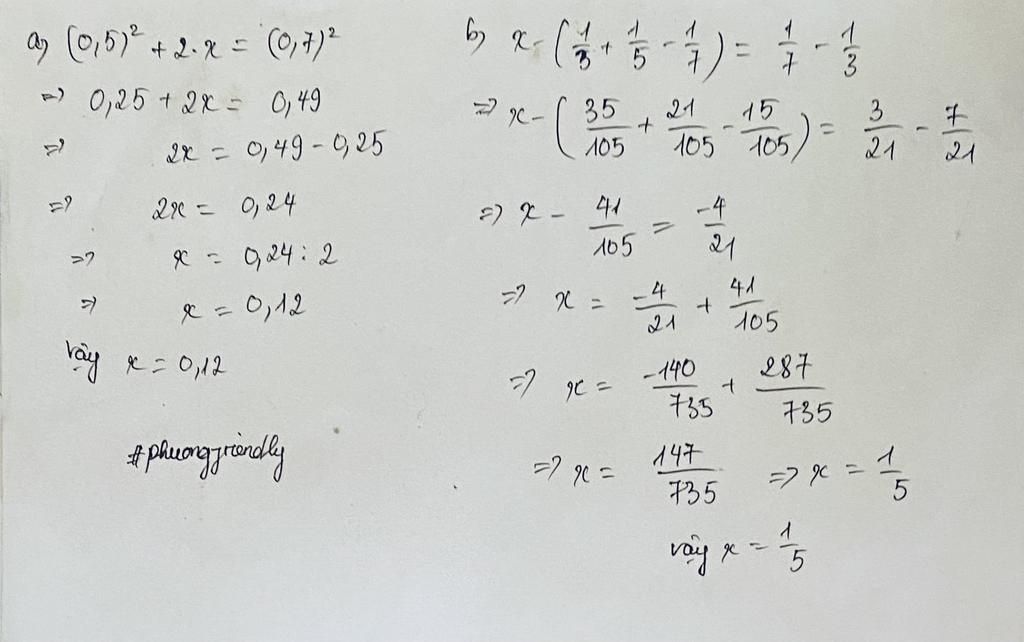 a) (0,5)² + 2·x = (0,7)²
=> 0,25 + 2x = 0,49
=> 2x = 0,49 - 0,25
=> 2x = 0,24
=> x = 0,24 : 2
=> x = 0,12
vậy x = 0,12
#phuongfriendly
b) x - (1/3 + 1/5 - 1/7) = 1/7 - 1/3
=> x - (35/105 + 21/105 - 15/105) = 3/21 - 7/21
=> x - 41/105 = -4/21
=> x = -4/21 + 41/105
=> x = -140/735 + 287/735
=> x = 147/735 => x = 1/5
vậy x = 1/5